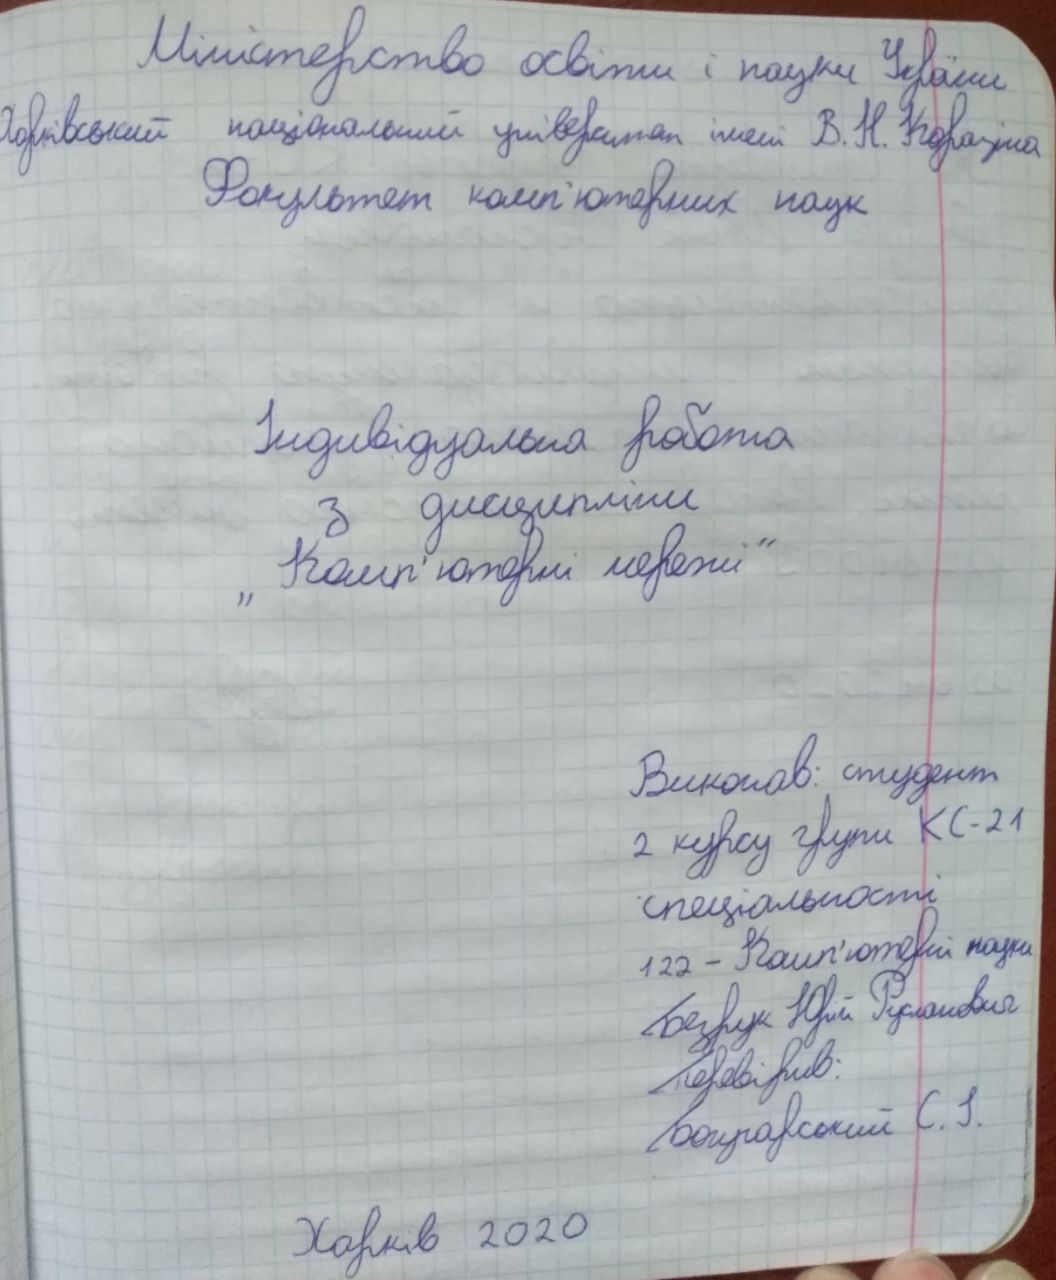 Міністерство освіти і науки України
Харківський національний університет імені В.Н. Каразіна
Факультет комп'ютерних наук
Індивідуальна робота
з дисципліни
„Комп'ютерні мережі"
Виконав: студент
2 курсу групи КС-21
спеціальності
122 - Комп'ютерні науки
Безрук Юрій Русланович
Перевірив:
С. І.
Харків 2020